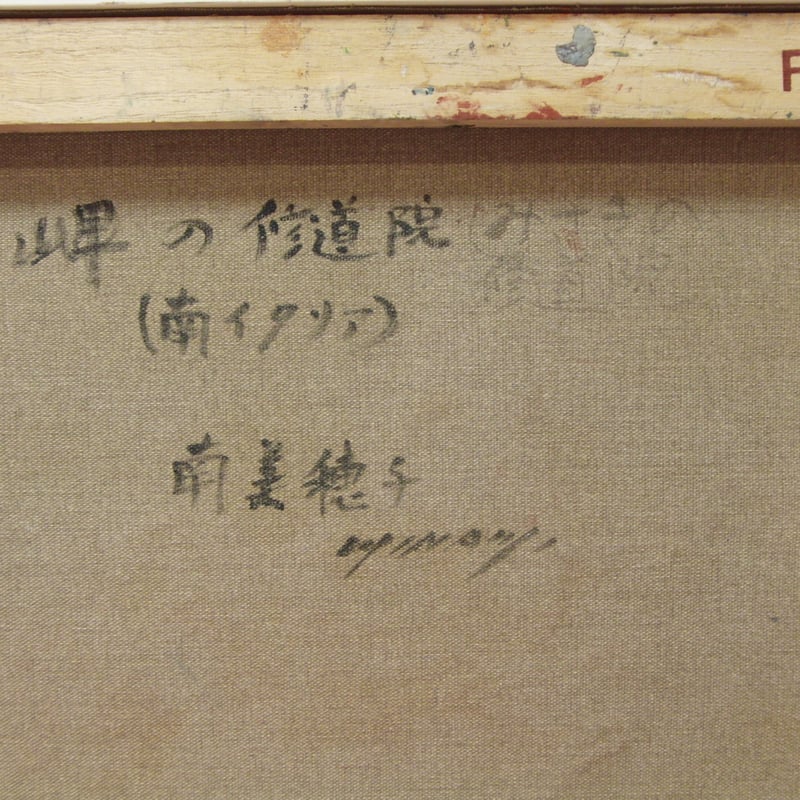 F
岬の修道院 (みさきの
修道院
(南イタリア)
南美穂子